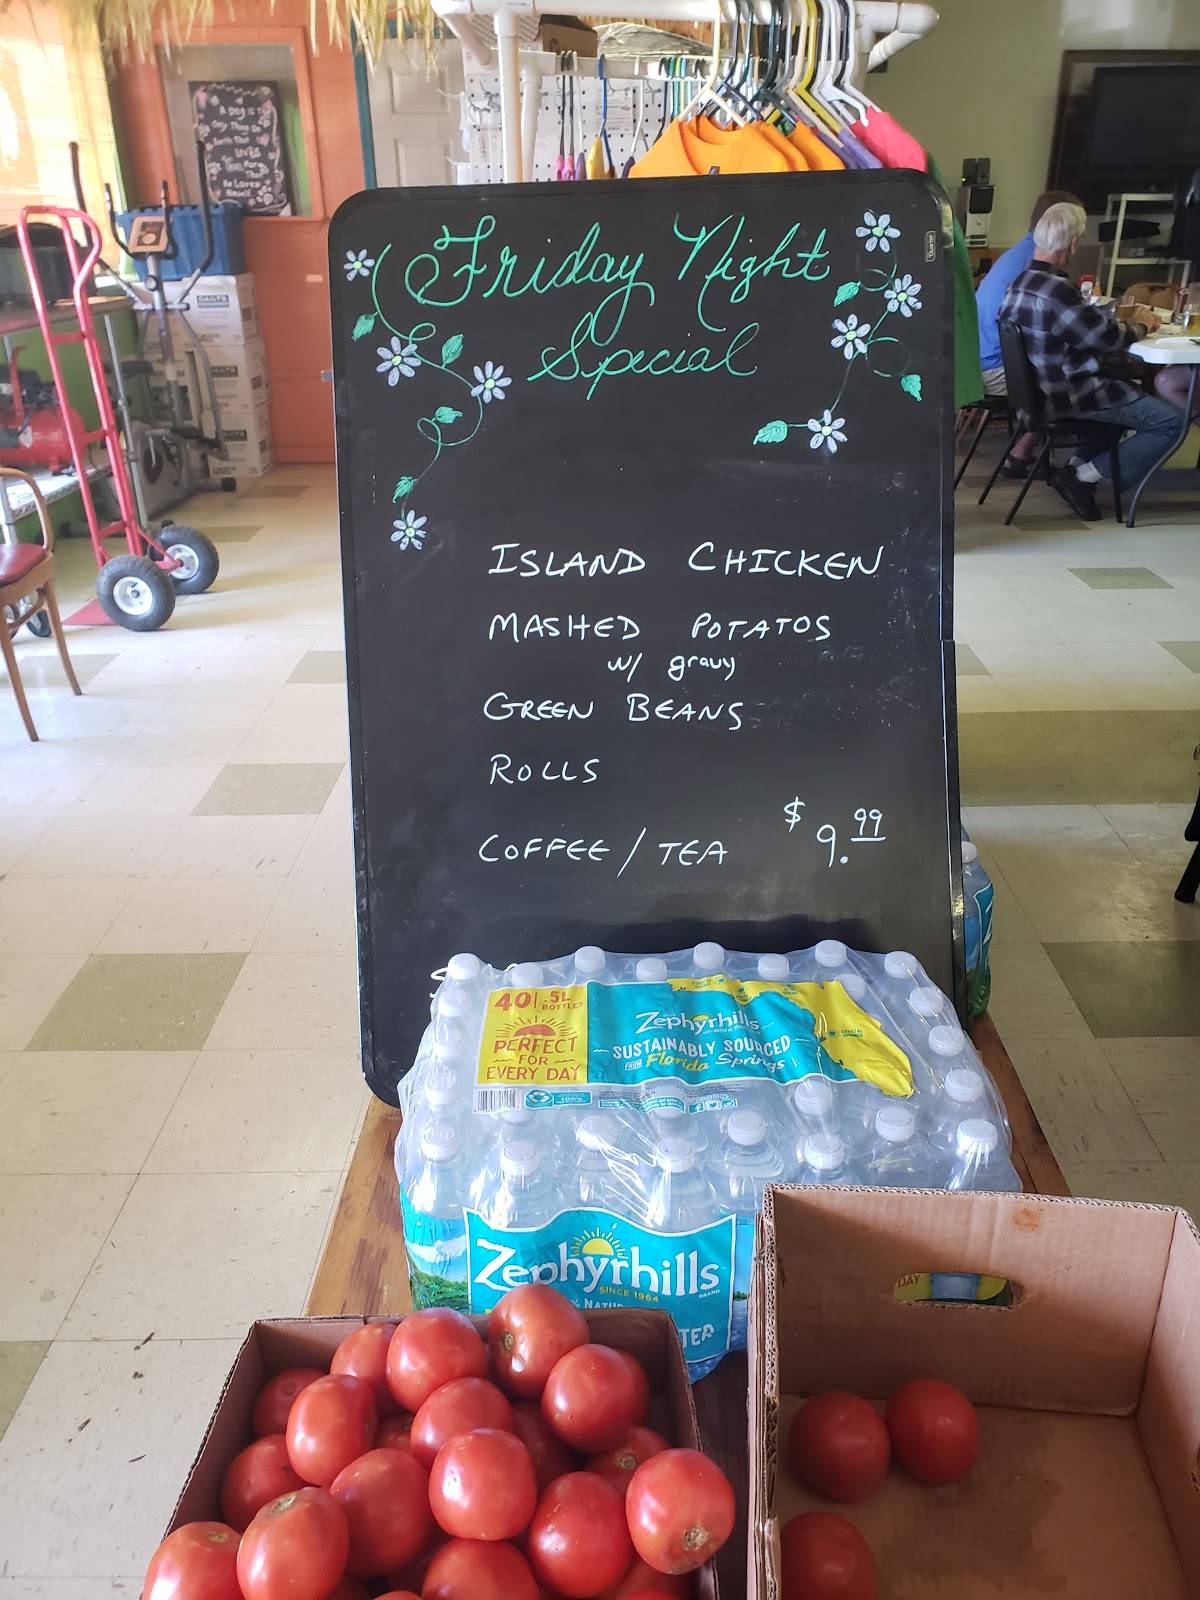 A Dog is
Friday Night
Special
ISLAND CHICKEN
MASHED POTATOS
w/ gravy
GREEN BEANS
ROLLS
COFFEE / TEA $9.99
40 .5L
BOTTLES
PERFECT
FOR
EVERY DAY
Zephyrhills
SUSTAINABLY SOURCED
FROM Florida Springs
100%
Zephyrhills
BRAND
SINCE 1964
DAY